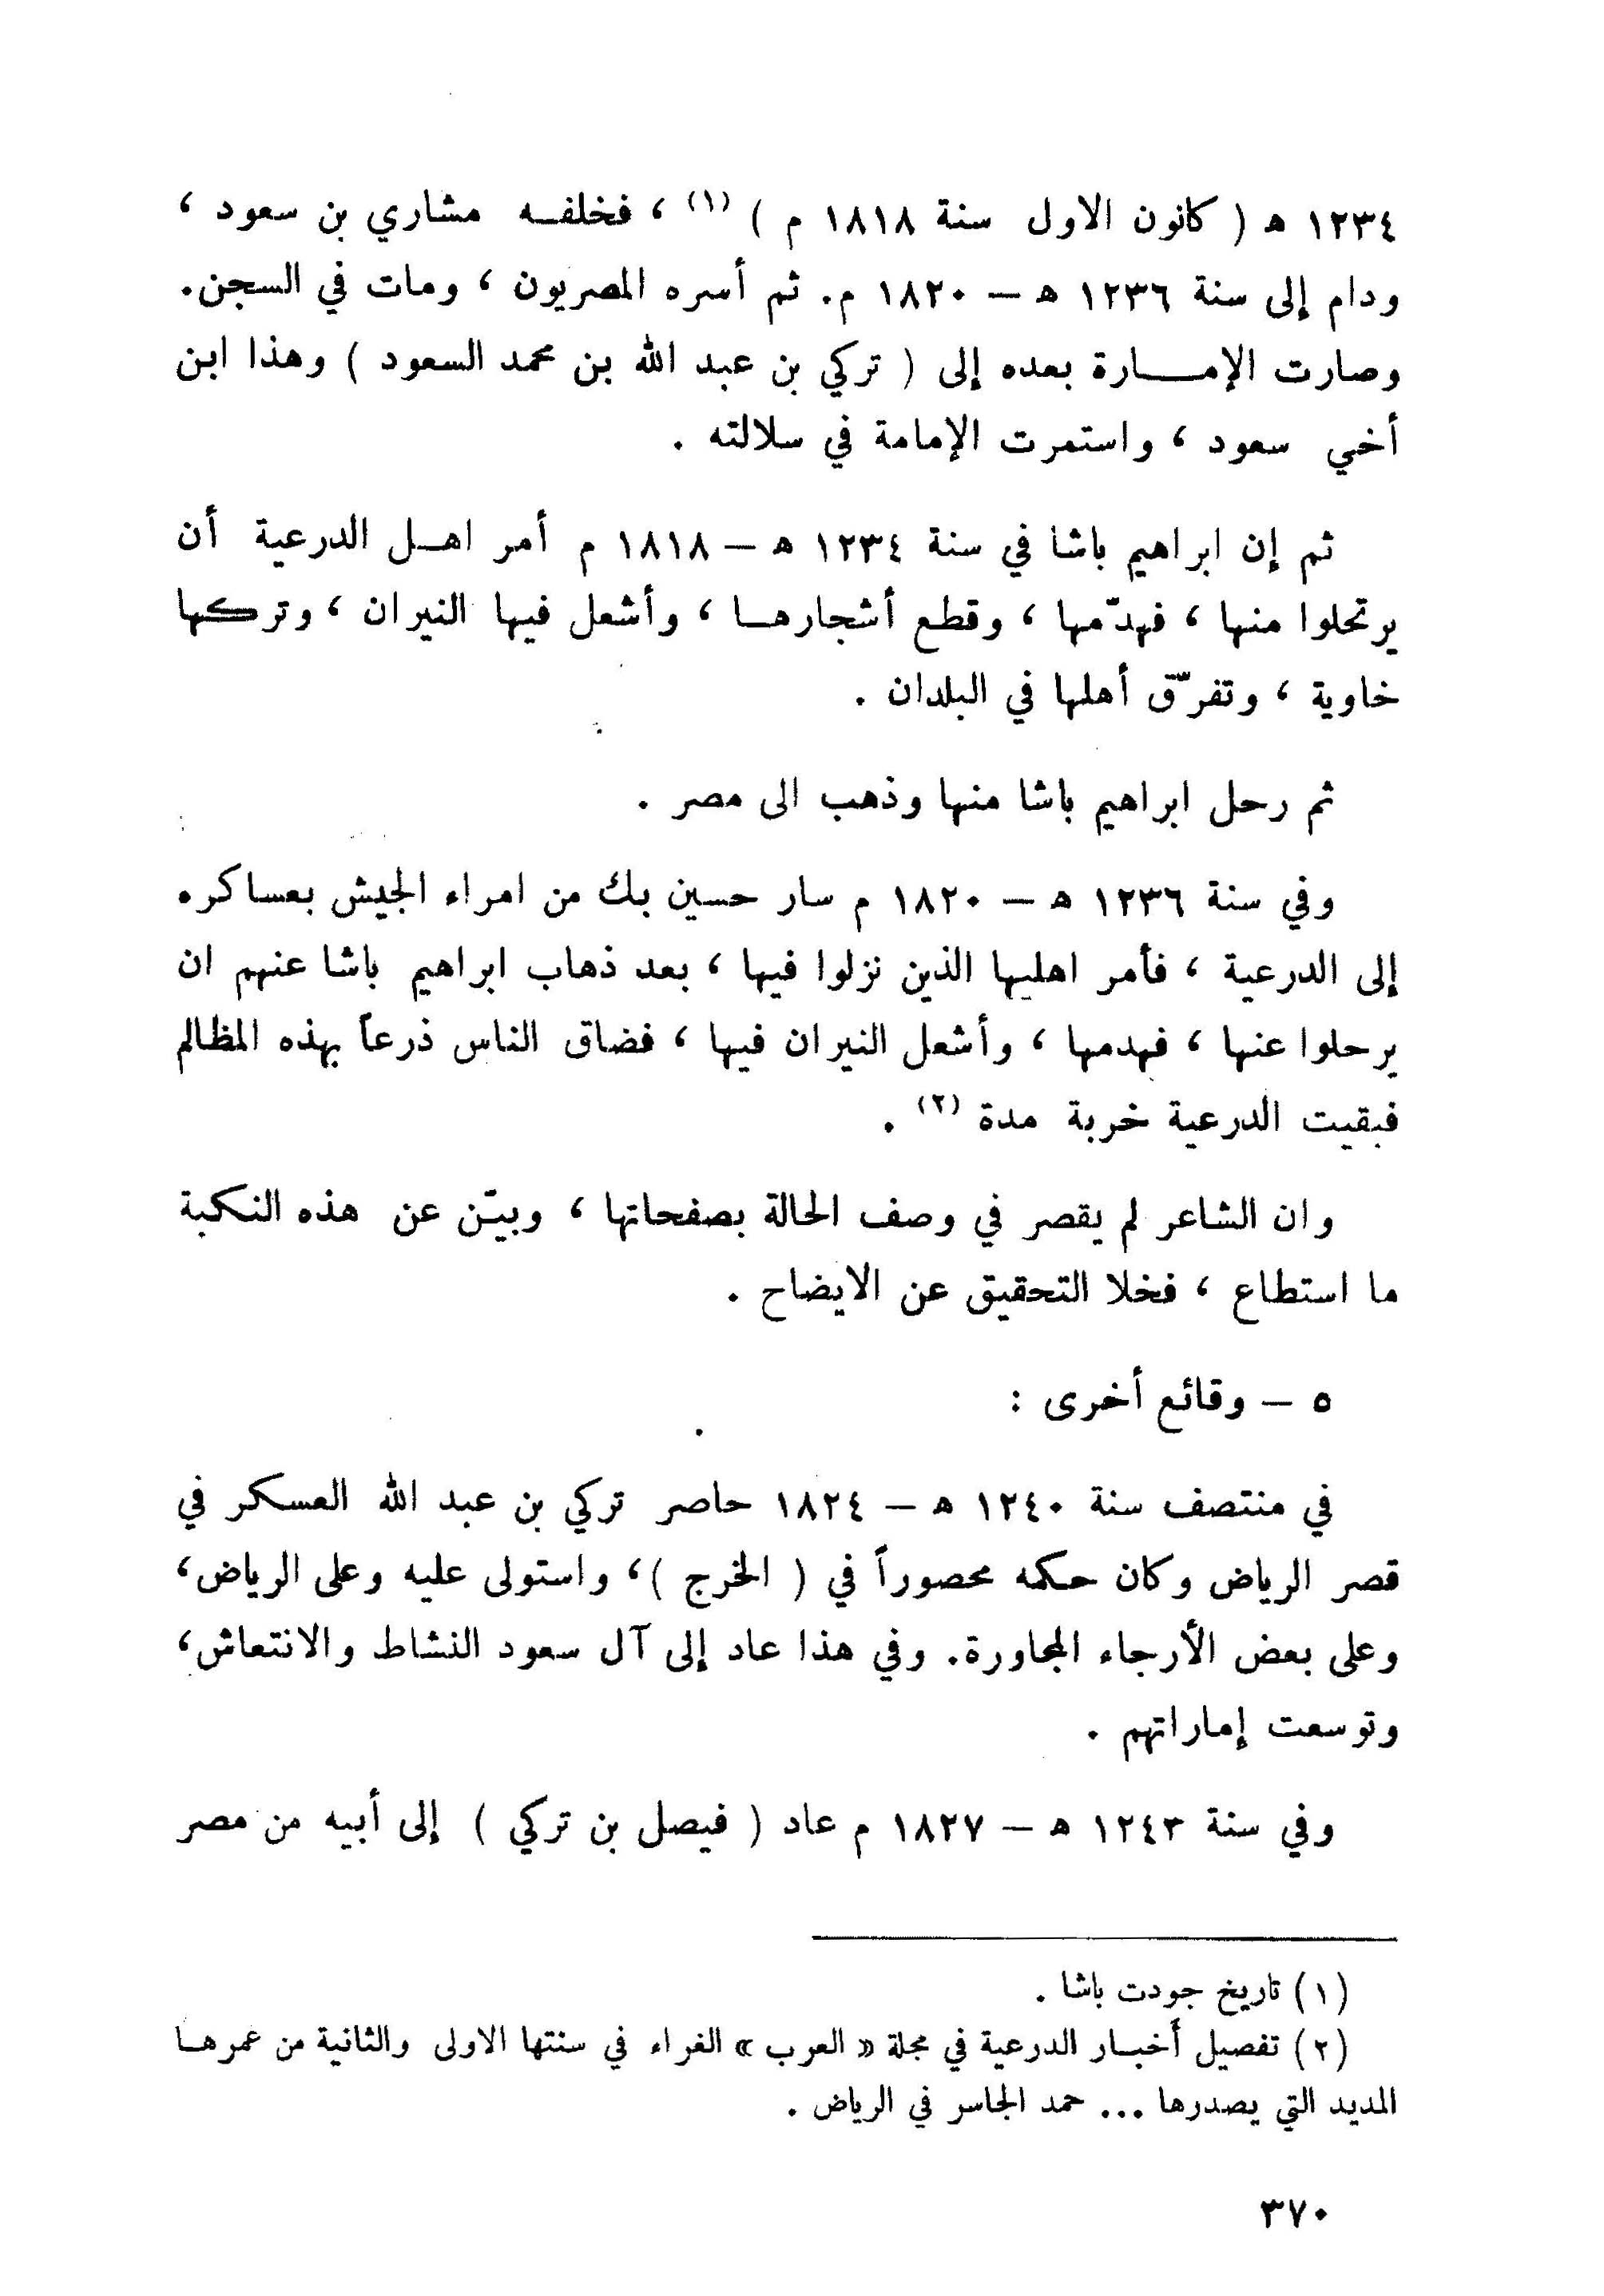 ١٢٣٤ هـ ( كانون الاول سنة ١٨١٨ م ) (١) ، فخلفــه مشاري بن سعود ،
ودام إلى سنة ١٢٣٦ هـ – ١٨٢٠ م. ثم أسره المصريون ، ومات في السجن.
وصارت الإمــــارة بعده إلى ( تركي بن عبد الله بن محمد السعود ) وهذا ابن
أخي سعود ، واستمرت الإمامة في سلالته .
ثم إن ابراهيم باشا في سنة ١٢٣٤ هـ – ١٨١٨ م أمر اهــل الدرعية أن
يرتحلوا منها ، فهدّمها ، وقطع أشجارهــا ، وأشعل فيها النيران ، وتركها
خاوية ، وتفرّق أهلها في البلدان .
ثم رحل ابراهيم باشا منها وذهب الى مصر .
وفي سنة ١٢٣٦ هـ – ١٨٢٠ م سار حسين بك من امراء الجيش بعساكره
إلى الدرعية ، فأمر اهليها الذين نزلوا فيها ، بعد ذهاب ابراهيم باشا عنهم ان
يرحلوا عنها ، فهدمها ، وأشعل النيران فيها ، فضاق الناس ذرعاً بهذه المظالم
فبقيت الدرعية خربة مدة (٢) .
وان الشاعر لم يقصر في وصف الحالة بصفحاتها ، وبيّن عن هذه النكبة
ما استطاع ، فخلا التحقيق عن الايضاح .
٥ – وقائع أخرى :
في منتصف سنة ١٢٤٠ هـ – ١٨٢٤ حاصر تركي بن عبد الله العسكر في
قصر الرياض وكان حكمه محصوراً في ( الخرج )، واستولى عليه وعلى الرياض،
وعلى بعض الأرجاء المجاورة. وفي هذا عاد إلى آل سعود النشاط والانتعاش،
وتوسعت إماراتهم .
وفي سنة ١٢٤٣ هـ – ١٨٢٧ م عاد ( فيصل بن تركي ) إلى أبيه من مصر
(١) تاريخ جودت باشا .
(٢) تفصيل أخبــار الدرعية في مجلة « العرب » الغراء في سنتها الاولى والثانية من عمرهــا
المديد التي يصدرها ... حمد الجاسر في الرياض .
٣٧٠